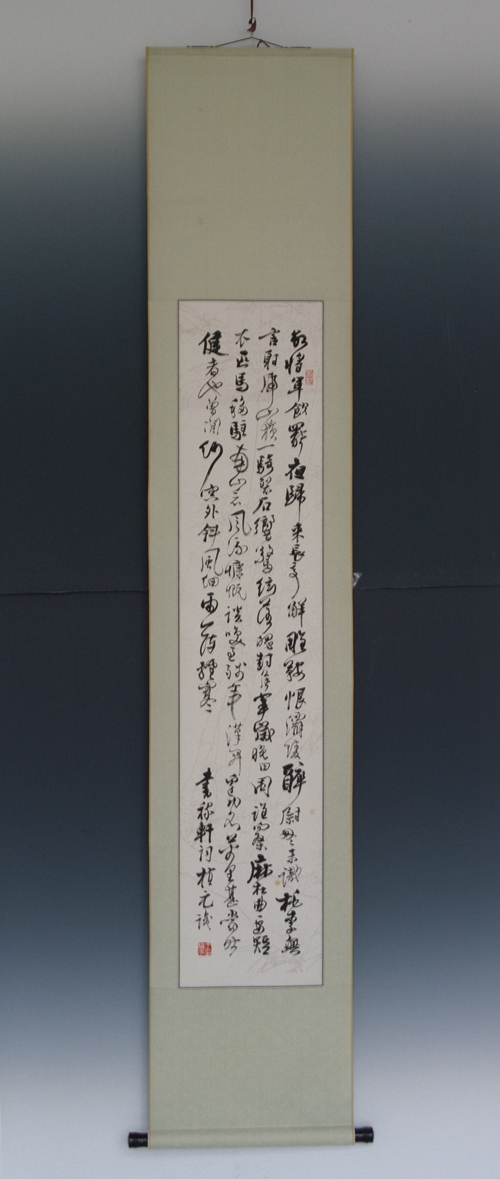 故將軍飲罷夜歸來長亭解雕鞍恨灞陵醉尉匆匆未識桃李無
言射虎山橫一騎裂石響驚弦落魄封侯事歲晚田園誰向桑麻杜曲要短
衣匹馬移住南山看風流慷慨談笑過殘年漢開邊功名萬里甚當時
健者也曾閑紗窗外斜風細雨一陣輕寒 書稼軒詞植元識